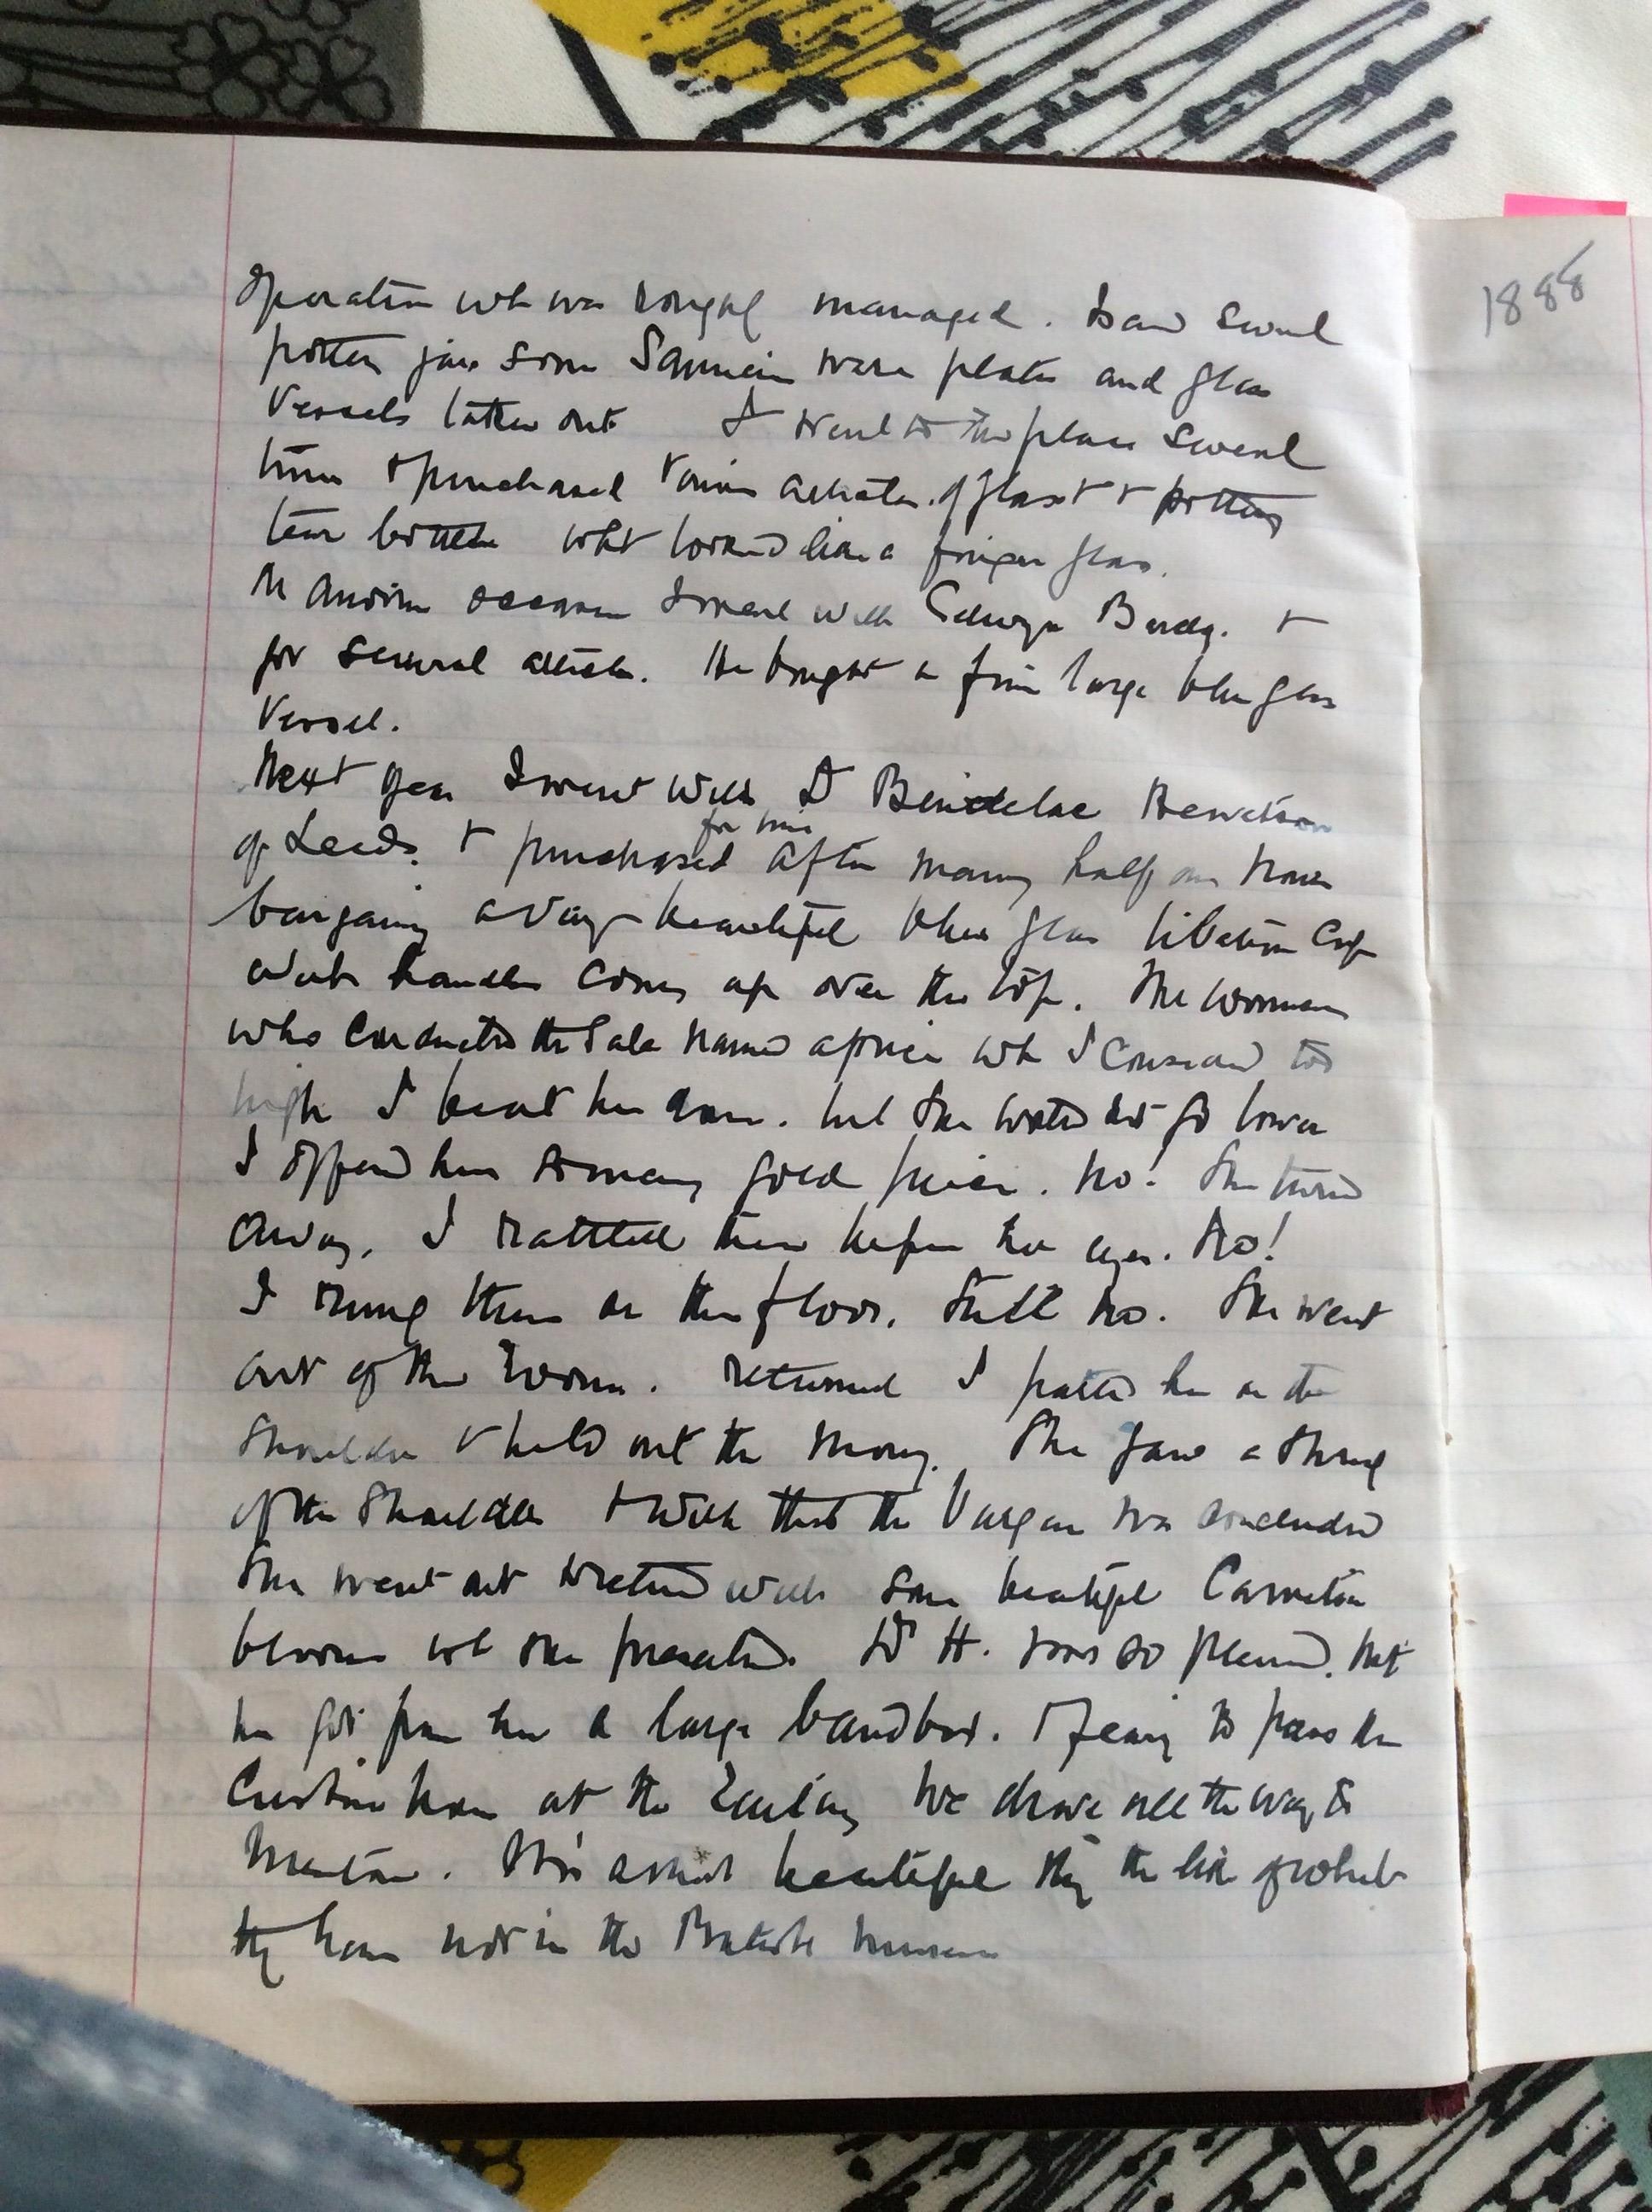 operation wh was roughly managed. I saw several
pottery jars some Samian ware plates and glass
Vessels taken out I went to the place several
times & purchased various articles of glass & pottery
tear bottles what looked like a finger glass.
On another occasion I went with &
for several articles. He bought a fine large blue glass
Vessel.
Next year I went with Dr Bendelac Hewetson
of Leeds. & purchased for him after many half an hours
bargaining a very beautiful blue glass libation Cup
with handles coming up over the top. The woman
who conducted the Sale named a price wh I considered too
high I beat her down. but she would not go lower
I offered her so many gold pieces. No! She turned
away. I rattled them before her eyes. No!
I rung them on the floor. Still no. She went
out of the room. returned I patted her on the
shoulder & held out the money. She gave a shrug
of the shoulders & with that the bargain was concluded
She went out & returned with some beautiful Carnation
blooms wh she presented. Dr H. was so pleased, that
he got from her a large bandbox. & fearing to pass the
Custom house at the Railway we drove all the way to
Mentone. It is a most beautiful thing the like of which
they have not in the British Museum
1888